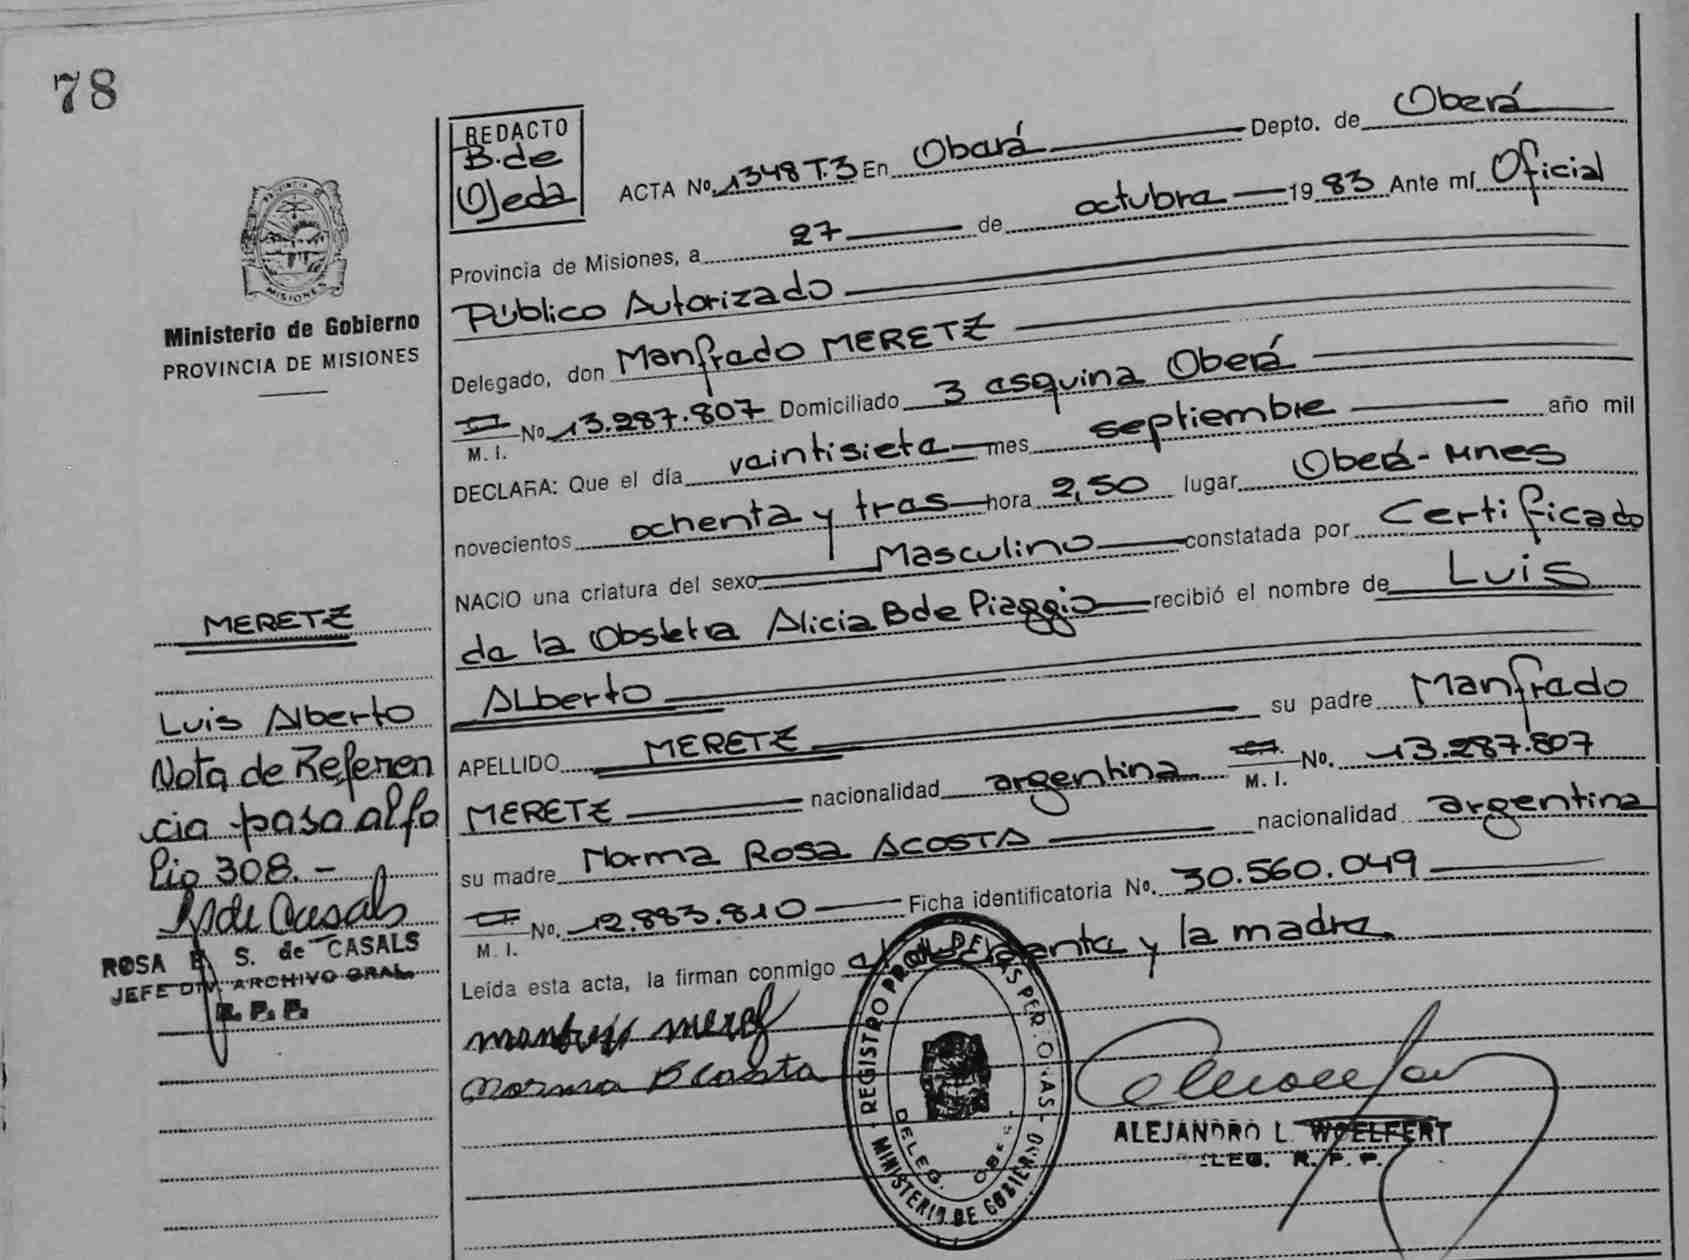 78
REDACTO
B. de
Ojeda
ACTA No. 1348 T.3 En Oberá Depto. de Oberá
Provincia de Misiones, a 27 de octubre 1983 Ante mí Oficial
Público Autorizado
Delegado, don Manfredo MERETZ
M. I. No 13.287.807 Domiciliado 3 esquina Oberá
DECLARA: Que el día veintisiete mes septiembre año mil
novecientos ochenta y tres hora 2,50 lugar Oberá - Mnes
NACIO una criatura del sexo Masculino constatada por Certificado
de la Obstetra Alicia B de Piaggio recibió el nombre de Luis
Alberto
APELLIDO MERETZ su padre Manfredo
MERETZ nacionalidad argentina M. I. No. 13.287.807
su madre Norma Rosa ACOSTA nacionalidad argentina
M. I. No. 12.883.810 Ficha identificatoria No. 30.560.049
Leída esta acta, la firman conmigo y la madre.
Norma Acosta
ALEJANDRO L. WOELFERT
R. P. P.
REGISTRO PROV. DE LAS PERSONAS
MINISTERIO DE GOBIERNO
DELEG. OBERÁ
PROVINCIA DE
MISIONES
Ministerio de Gobierno
PROVINCIA DE MISIONES
MERETZ
Luis Alberto
Nota de Referen
cia pasa al fo
lio 308. -
R de Casals
ROSA E. S. de CASALS
JEFE DIV. ARCHIVO GRAL.
R. P. P.